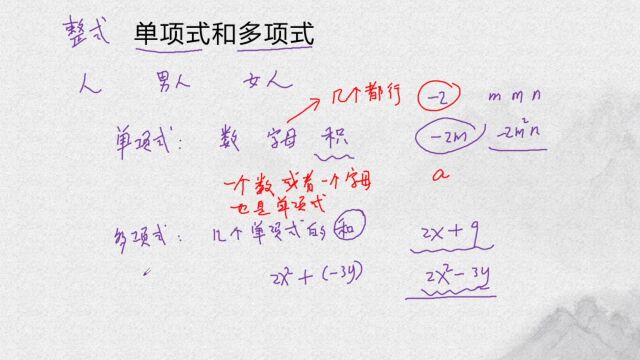 整式 单项式和多项式
人 男人 女人
几个都行 -2 m m n
单项式: 数 字母 积 -2m -2m²n
一个数或者一个字母 a
也是单项式
多项式: 几个单项式的和 2x+9
2x²+(-3y) 2x²-3y